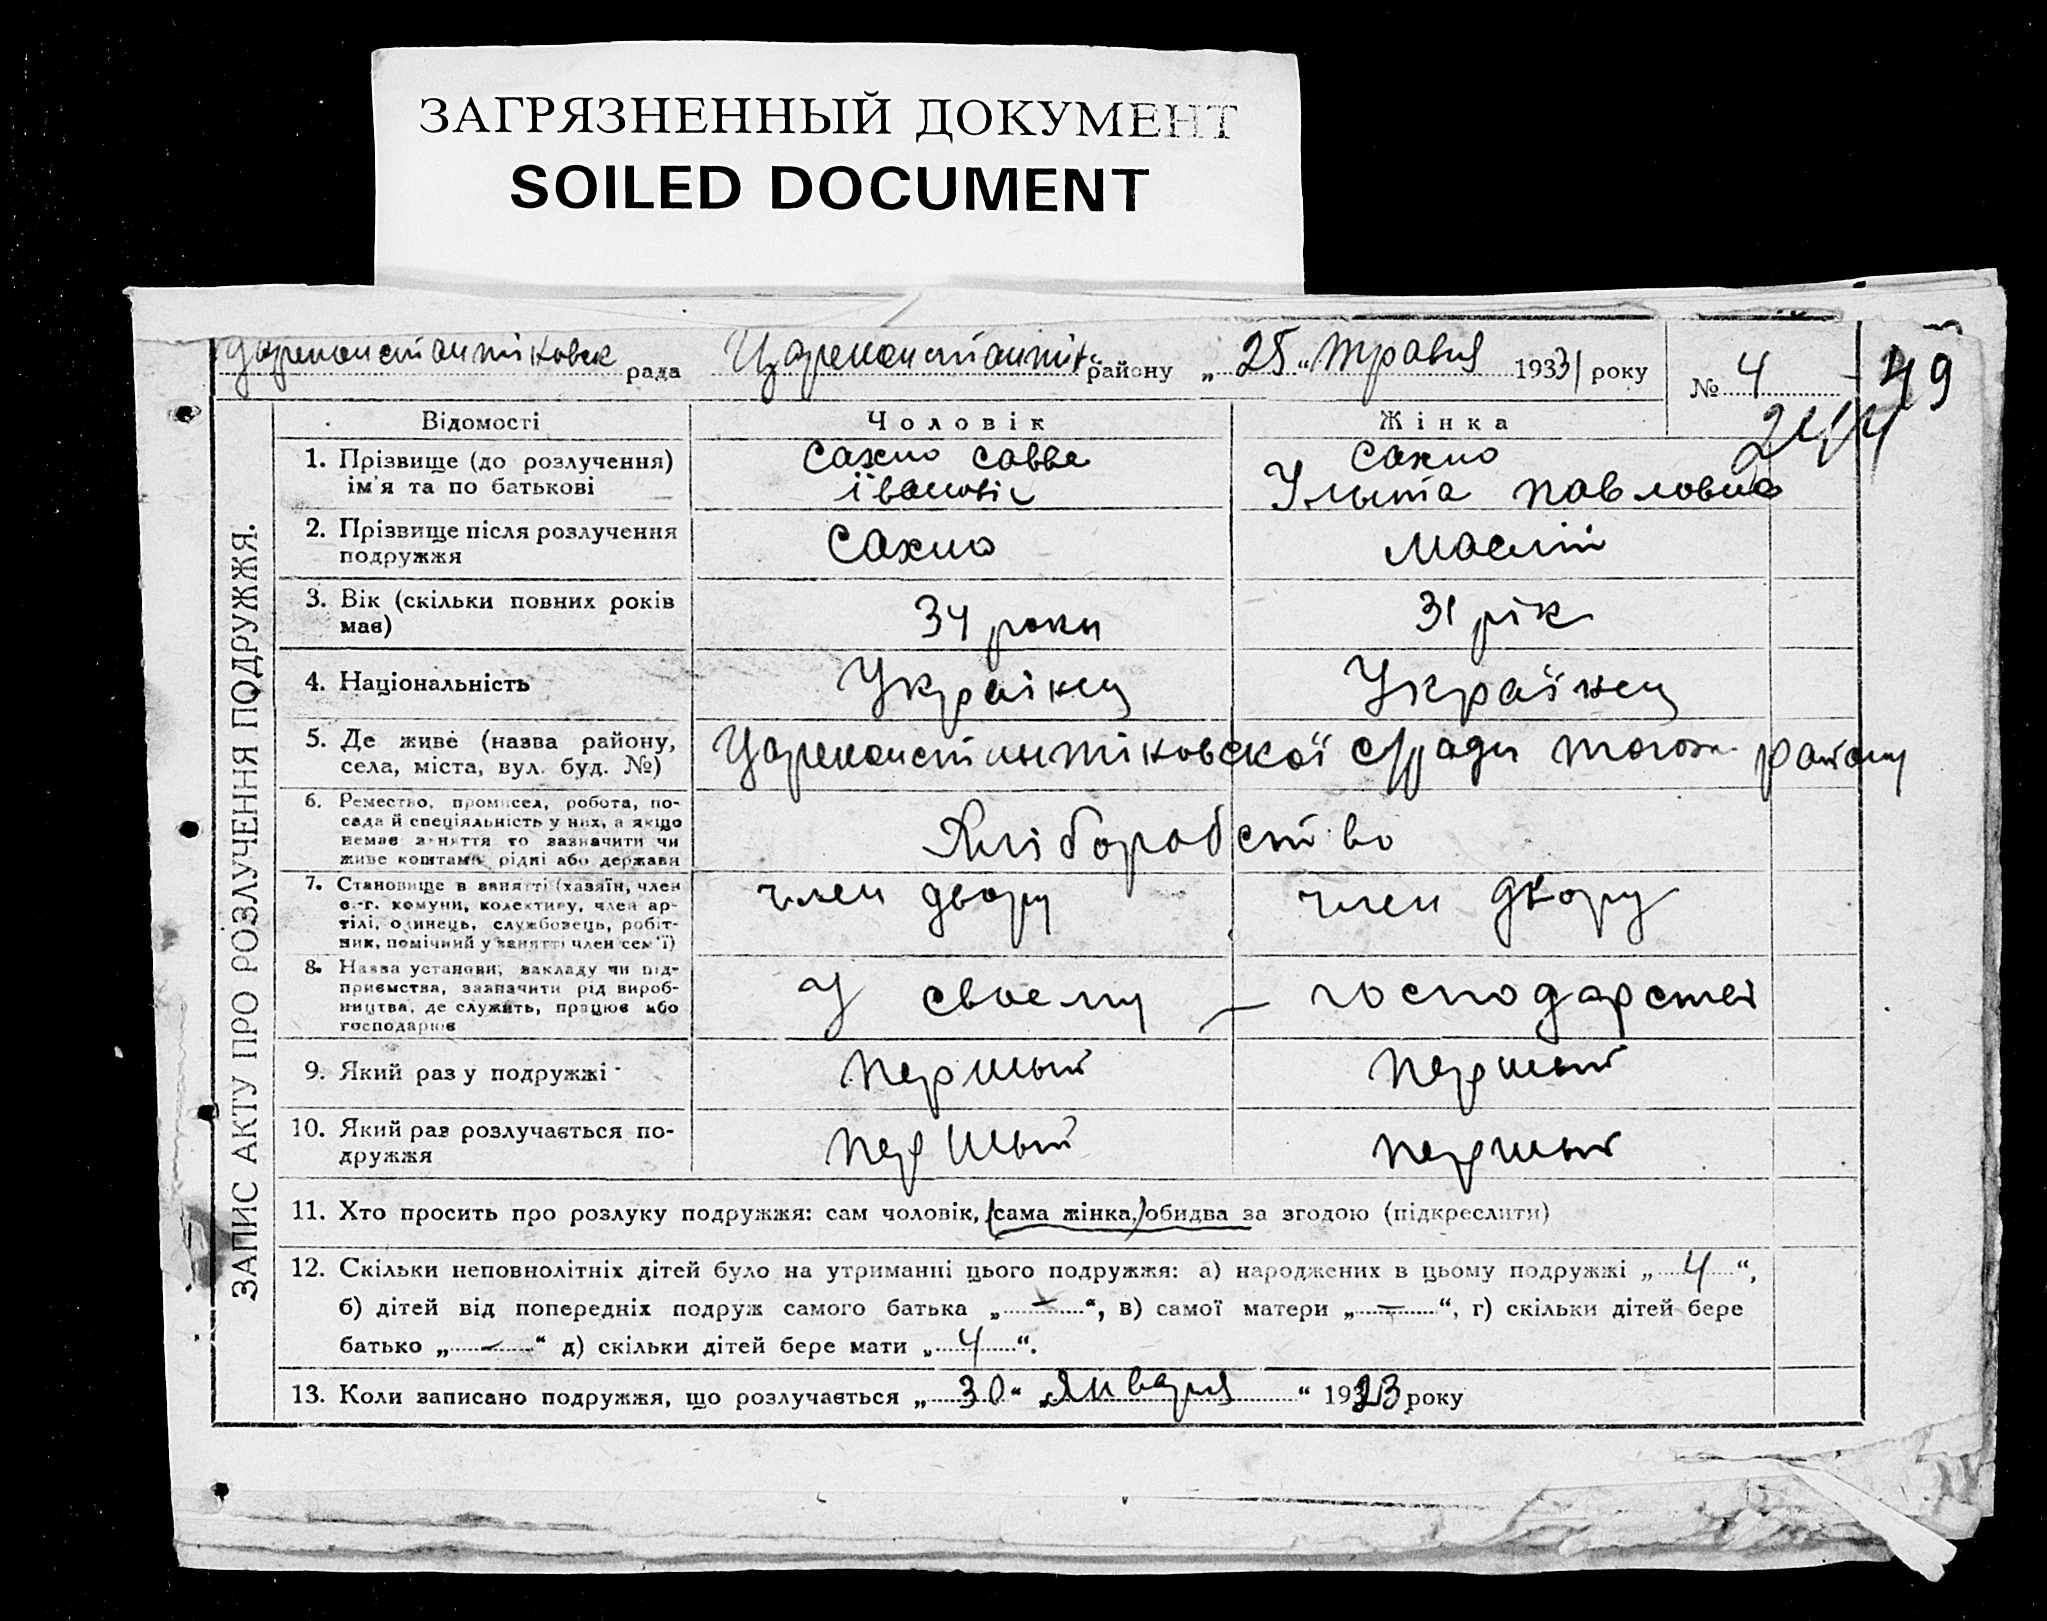 ЗАГРЯЗНЕННЫЙ ДОКУМЕНТ
SOILED DOCUMENT
Цареконстантіновск рада Цареконстантін району „ 25 “ травня 1931 року № 4 49
244
ЗАПИС АКТУ ПРО РОЗЛУЧЕННЯ ПОДРУЖЖЯ.
Відомості Чоловік Жінка
1. Прізвище (до розлучення) Сахно Савва Сахно
ім'я та по батькові Іванов Улыта Павловна
2. Прізвище після розлучення Сахно Маслій
подружжя
3. Вік (скільки повних років 34 роки 31 рік
має)
4. Національність Українец Українец
5. Де живе (назва району, Цареконстантіновскої с/ради того-ж району
села, міста, вул. буд. №)
6. Ремество, промисел, робота, по-
сада й спеціяльність у них, а якщо
немає заняття то зазначити чи Хліборобство
живе коштами рідні або держави
7. Становище в занятті (хазяїн, член член двору член двору
с.-г. комуни, колективу, член ар-
тілі, одинець, службовець, робіт-
ник, помічний у занятті член сем'ї)
8. Назва установи, закладу чи під-
приємства, зазначити рід вироб- У своему — господарстві
ництва, де служить, працює або
господарює
9. Який раз у подружжі першый першый
10. Який раз розлучається по- першый першый
дружжя
11. Хто просить про розлуку подружжя: сам чоловік, (сама жінка,) обидва за згодою (підкреслити)
12. Скільки неповнолітніх дітей було на утриманні цього подружжя: а) народжених в цьому подружжі „ 4 “,
б) дітей від попередніх подруж самого батька „ — “, в) самої матери „ — “, г) скільки дітей бере
батько „ — “ д) скільки дітей бере мати „ 4 “.
13. Коли записано подружжя, що розлучається „ 30 “ „ Января “ 1923 року